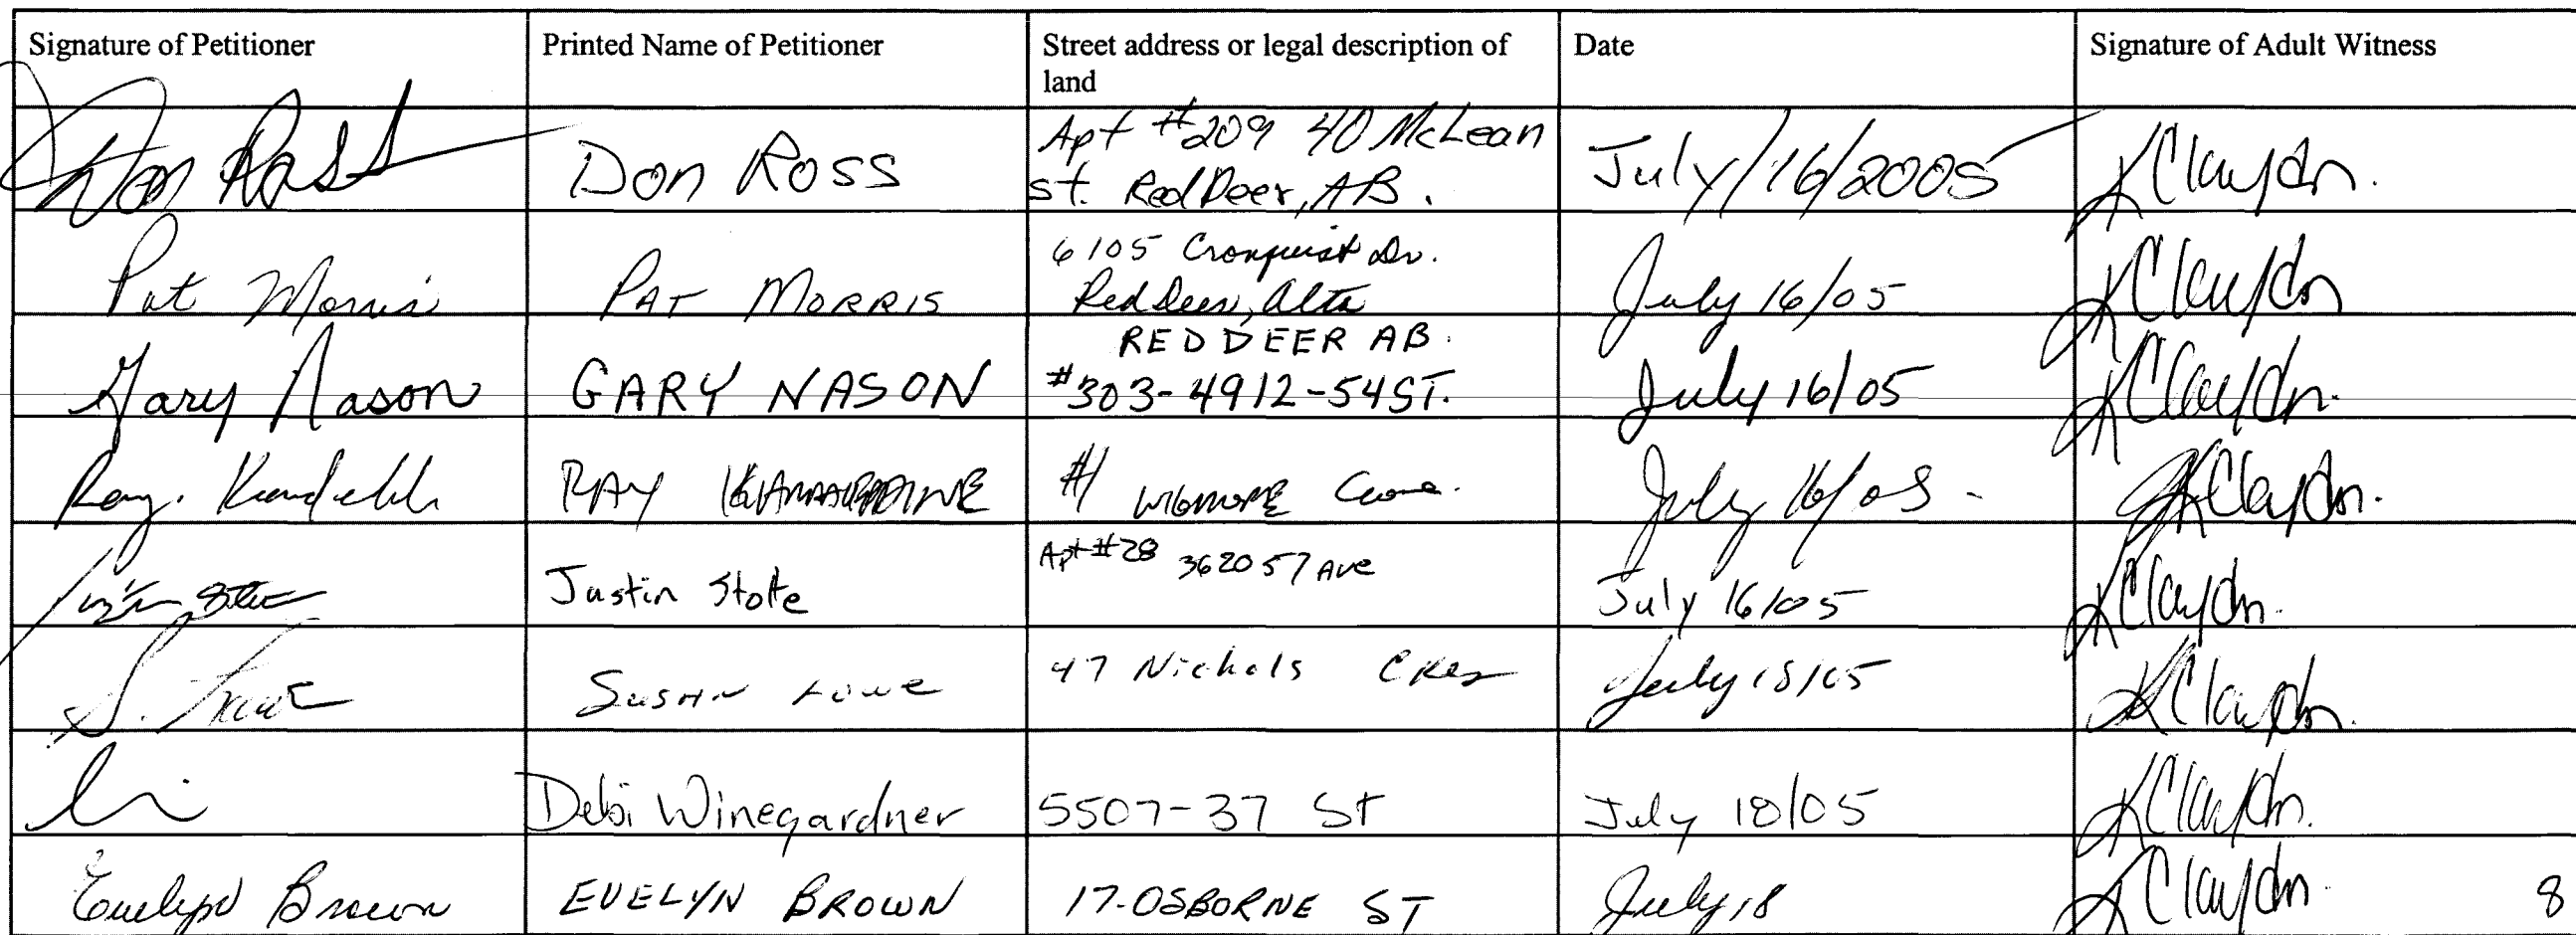 Signature of Petitioner Printed Name of Petitioner Street address or legal description of Date Signature of Adult Witness
land
Don Ross DON ROSS Apt #209 40 McLean July/16/2005 KClaydon.
St. Red Deer, AB.
Pat Morris PAT MORRIS 6105 Cronquist Dr. July 16/05 KClaydon
Red Deer, Alta
RED DEER AB.
Gary Nason GARY NASON #303-4912-54ST. July 16/05 KClaydon.
Ray. RAY #1 WIGMORE July 16/05 - KClaydon.
Justin Stolte Apt #28 3620 57 Ave July 16/05 KClaydon.
S. Lowe SUSAN Lowe 47 Nichols CRes July 18/05 KClaydon.
Debi Winegardner 5507-37 St July 18/05 KClaydon.
Evelyn Brown EVELYN BROWN 17-OSBORNE ST July 18 KClaydon 8